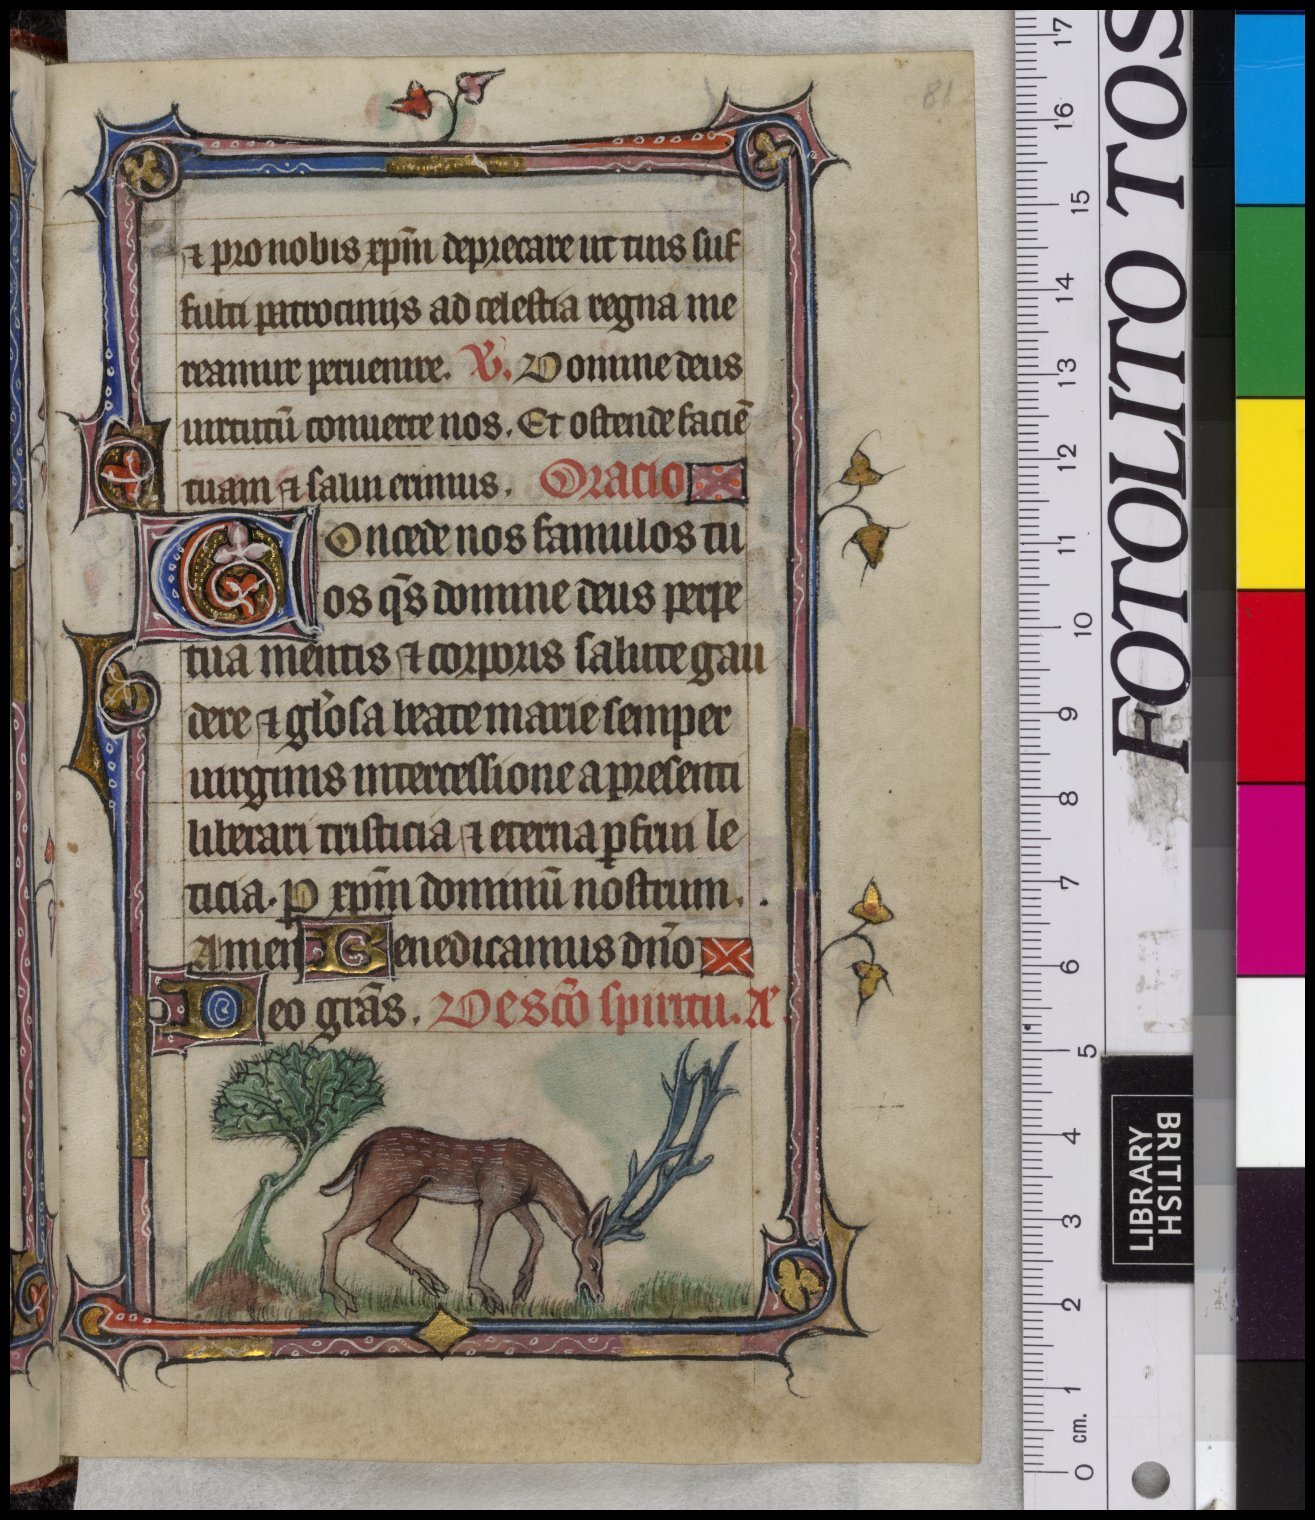 81
⁊ pro nobis xp̄m deprecare ut tuis suf
fulti patrocinijs ad celestia regna me
reamur peruenire. V. Domine deus
uirtutū conuerte nos. Et ostende faciē
tuam ⁊ salui erimus. Oracio
Concede nos famulos tu
os q̄s domine deus perpe
tua mentis ⁊ corporis salute gau
dere ⁊ gl'osa beate marie semper
uirginis intercessione a presenti
liberari tristicia ⁊ eterna ꝑfrui le
ticia. p xp̄m dominū nostrum.
Amen Benedicamus dn̄o
Deo grās. De sc̄o spiritu. A.
FOTOLITO LTOS
BRITISH
LIBRARY
17
16
15
14
13
12
11
10
9
8
7
6
5
4
3
2
1
cm.
0